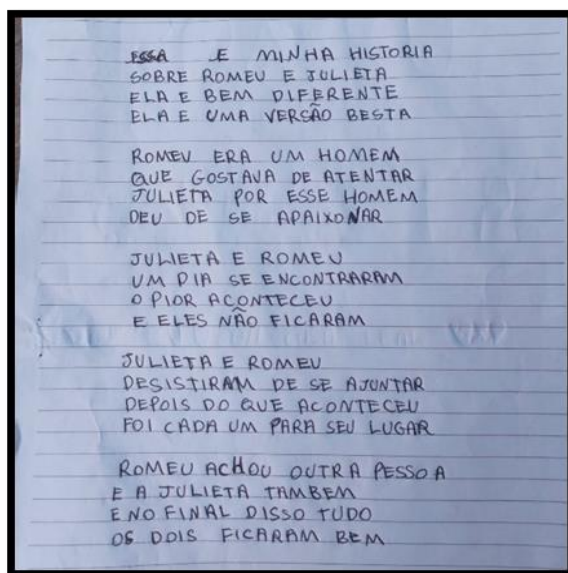 ESSA E MINHA HISTORIA
SOBRE ROMEU E JULIETA
ELA E BEM DIFERENTE
ELA E UMA VERSÃO BESTA
ROMEU ERA UM HOMEM
QUE GOSTAVA DE ATENTAR
JULIETA POR ESSE HOMEM
DEU DE SE APAIXONAR
JULIETA E ROMEU
UM DIA SE ENCONTRARAM
O PIOR ACONTECEU
E ELES NÃO FICARAM
JULIETA E ROMEU
DESISTIRAM DE SE AJUNTAR
DEPOIS DO QUE ACONTECEU
FOI CADA UM PARA SEU LUGAR
ROMEU ACHOU OUTRA PESSOA
E A JULIETA TAMBEM
E NO FINAL DISSO TUDO
OS DOIS FICARAM BEM